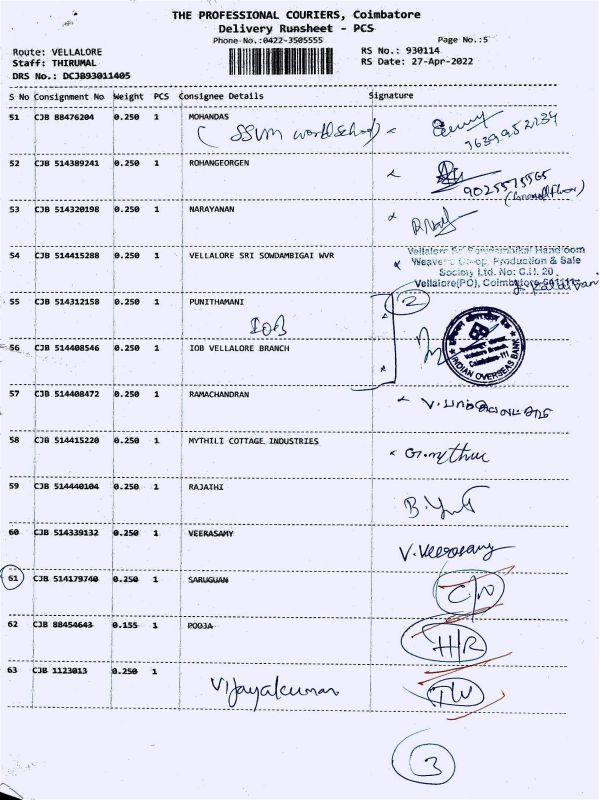 THE PROFESSIONAL COURIERS, Coimbatore
Delivery Runsheet - PCS
Phone No.:0422-3505555
Page No.:5
Route: VELLALORE
RS No.: 930114
Staff: THIRUMAL
RS Date: 27-Apr-2022
DRS No.: DCJB93011405
S No Consignment No Weight PCS Consignee Details Signature
51 CJB 88476204 0.250 1 MOHANDAS
(SSVM world school)
7639952234
52 CJB 514389241 0.250 1 ROHANGEORGEN
9025575565
53 CJB 514320198 0.250 1 NARAYANAN
54 CJB 514415288 0.250 1 VELLALORE SRI SOWDAMBIGAI WVR
Vellalore Sri Sowdambikai Handloom
Weavers Co-op. Production & Sale
Society Ltd. No: C.H. 20
Vellalore(PO), Coimbatore-641111
55 CJB 514312158 0.250 1 PUNITHAMANI
2
IOB
56 CJB 514408546 0.250 1 IOB VELLALORE BRANCH
INDIAN OVERSEAS BANK
Vellalore Branch
Coimbatore-111
57 CJB 514408472 0.250 1 RAMACHANDRAN
58 CJB 514415220 0.250 1 MYTHILI COTTAGE INDUSTRIES
59 CJB 514440104 0.250 1 RAJATHI
60 CJB 514339132 0.250 1 VEERASAMY
V. Veerasamy
61 CJB 514179740 0.250 1 SARUGUAN
C/N
62 CJB 88454643 0.155 1 POOJA
H/R
63 CJB 1123013 0.250 1
Vijayakumar
TW
3